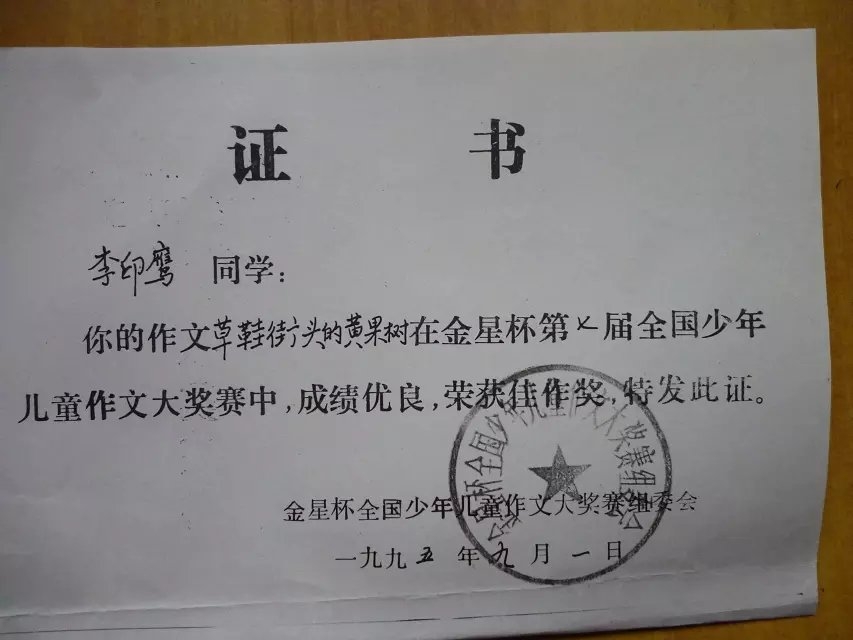 证 书
李印鹰 同学:
你的作文草鞋街头的黄果树在金星杯第七届全国少年
儿童作文大奖赛中,成绩优良,荣获佳作奖,特发此证。
金星杯全国少年儿童作文大奖赛组委会
一九九五年九月一日
金星杯全国少年儿童作文大奖赛组委会